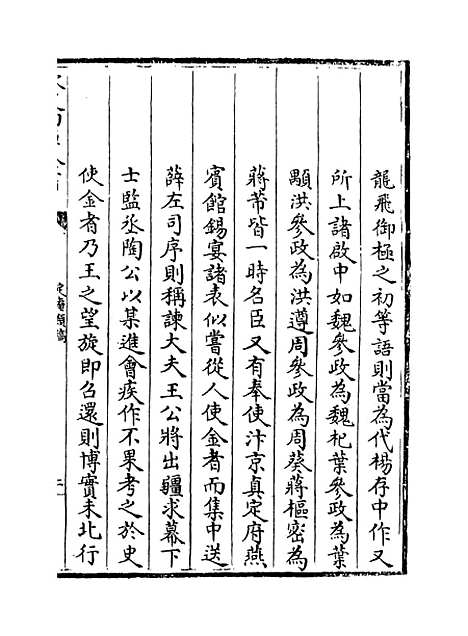 龍飛御極之初等語則當為代楊存中作又
所上諸啟中如魏參政為魏杞葉參政為葉
顒洪參政為洪遵周參政為周葵蔣樞密為
蔣芾皆一時名臣又有奉使汴京真定府燕
賓館錫宴諸表似嘗從人使金者而集中送
薛左司序則稱諫大夫王公將出疆求幕下
士監丞陶公以某進會疾作不果考之於史
使金者乃王之望旋即召還則博實未北行